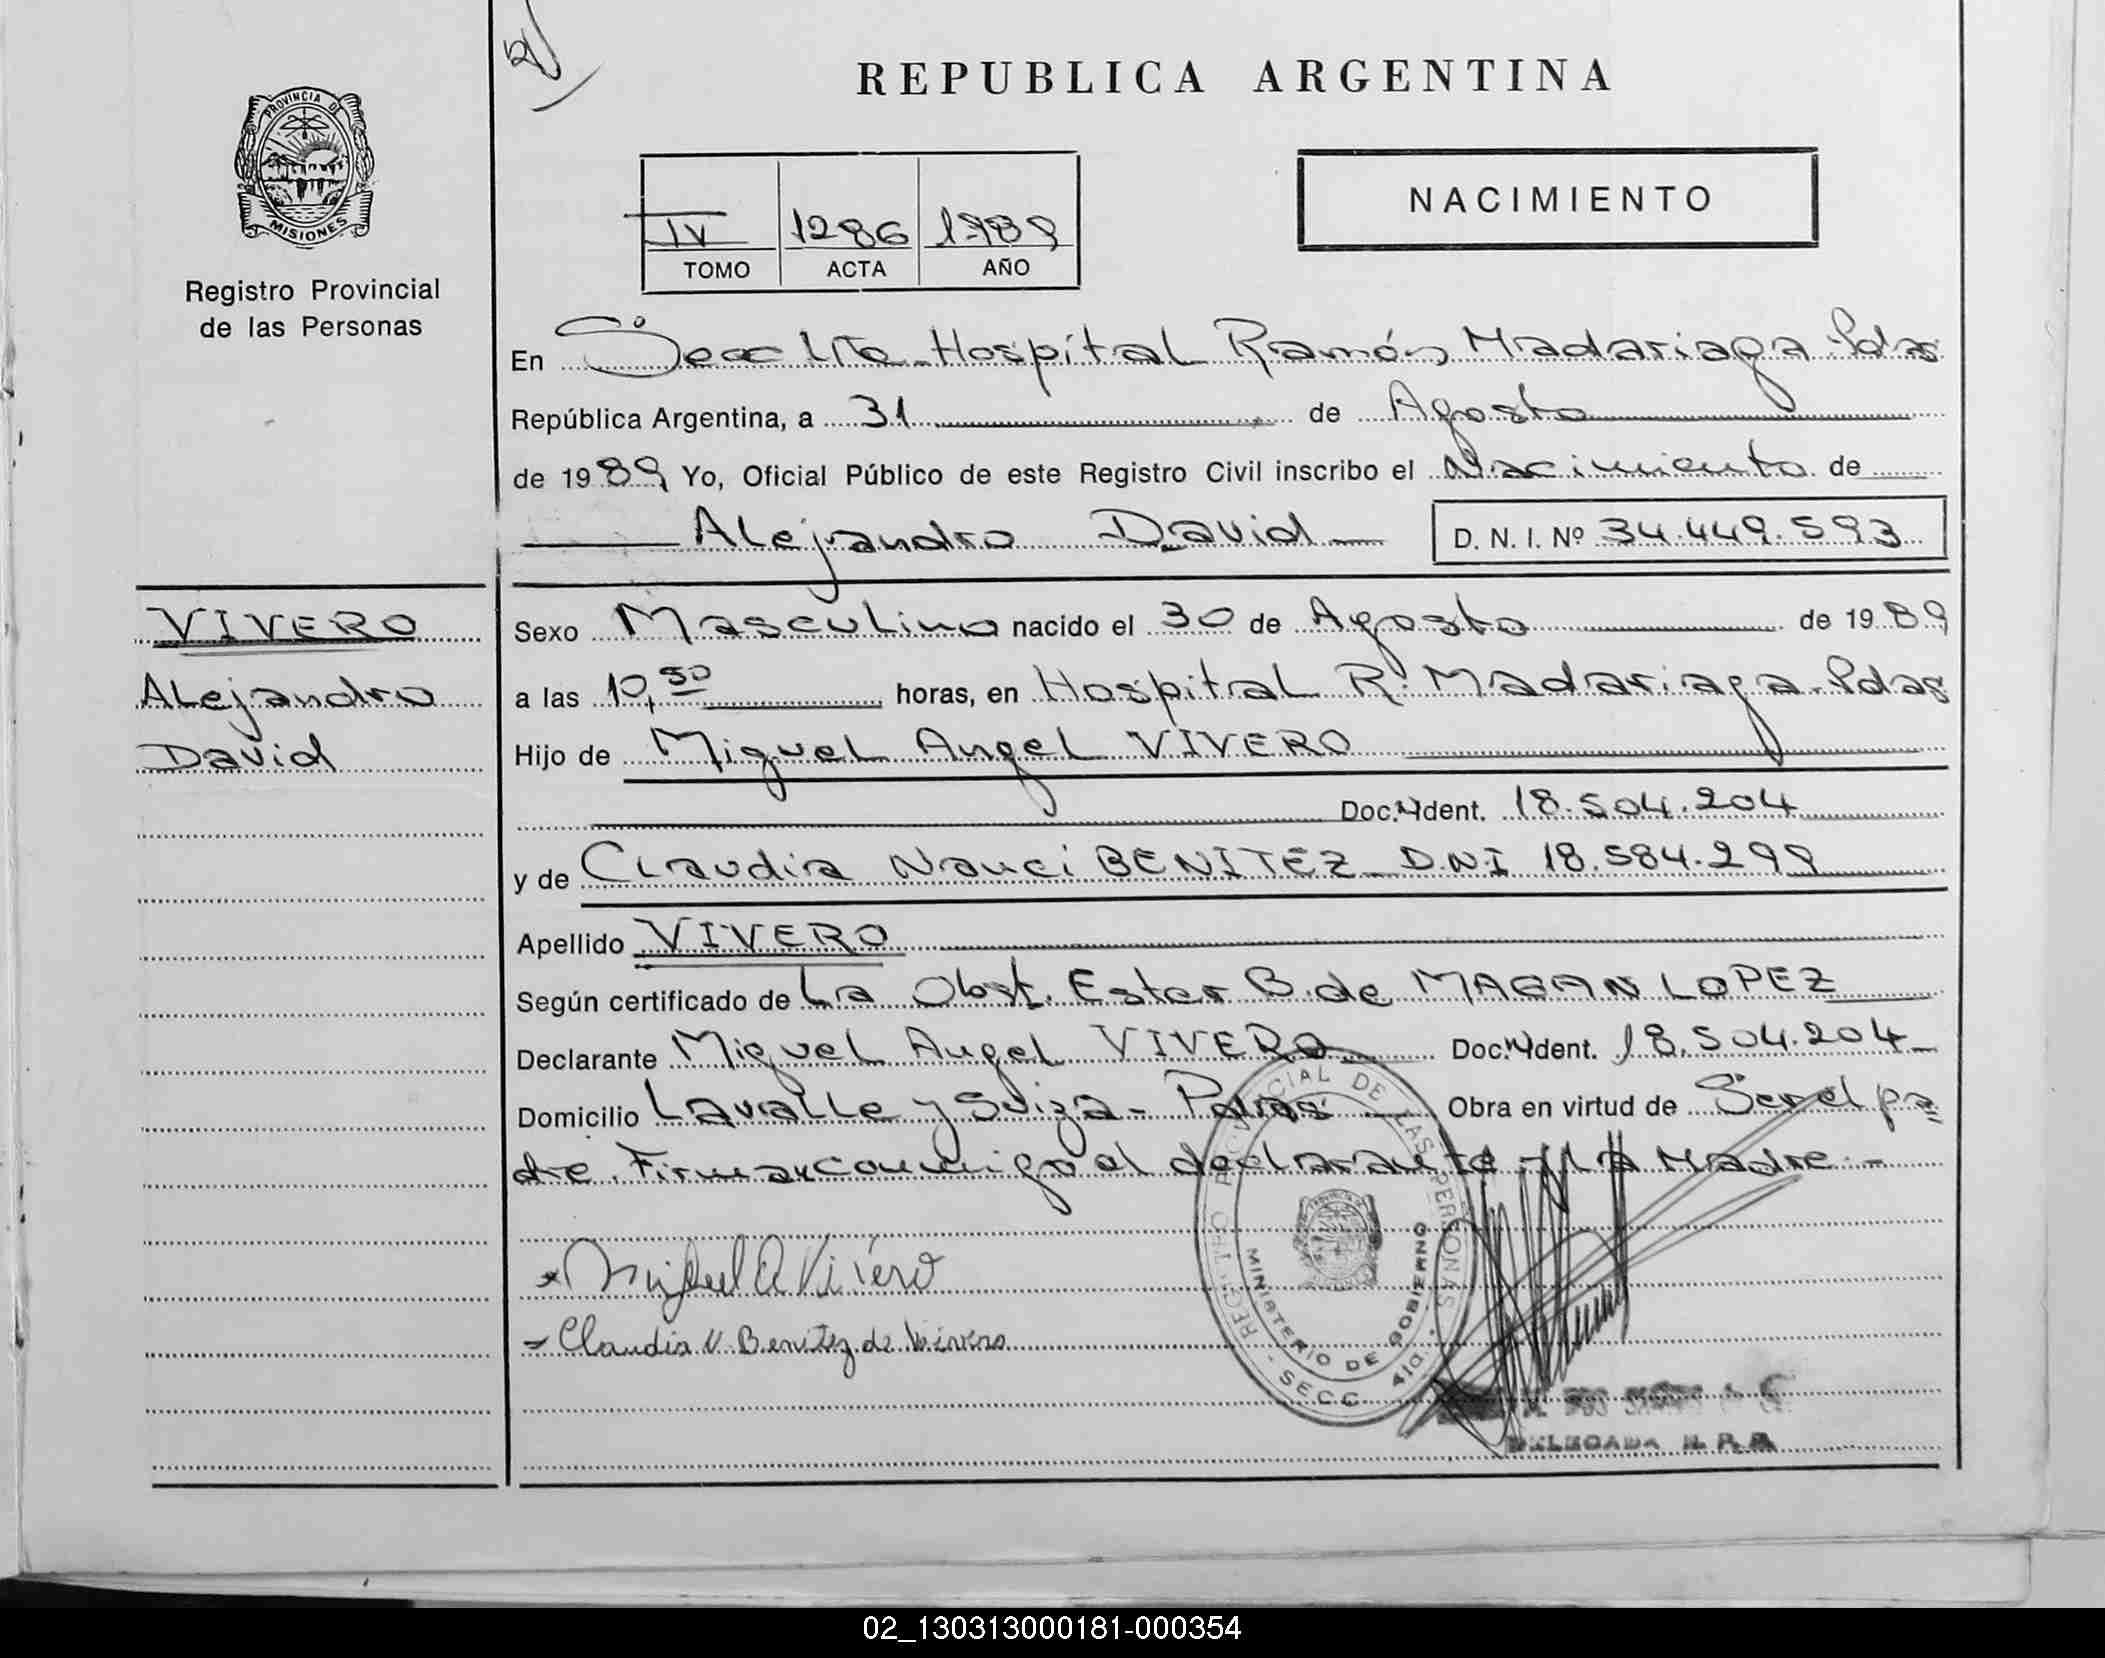 REPUBLICA ARGENTINA
PROVINCIA DE
MISIONES
Registro Provincial
de las Personas
IV 1286 1989
TOMO ACTA AÑO
NACIMIENTO
En Secc 4ta Hospital Ramón Madariaga-Pdas
República Argentina, a 31 de Agosto
de 1989 Yo, Oficial Público de este Registro Civil inscribo el Nacimiento de
Alejandro David D. N. I. Nº 34.449.593
VIVERO
Alejandro
David
Sexo Masculino nacido el 30 de Agosto de 1989
a las 10,50 horas, en Hospital R. Madariaga-Pdas
Hijo de Miguel Angel VIVERO
Doc. Ident. 18.504.204
y de Claudia Nanci BENITEZ D.N.I 18.584.299
Apellido VIVERO
Según certificado de La Obst. Ester B. de MAGAN LOPEZ
Declarante Miguel Angel VIVERO Doc. Ident. 18.504.204
Domicilio Lavalle y Suiza- Pdas Obra en virtud de Ser el pa
dre. Firman conmigo el declarante y La Madre.-
Miguel A Vivero
Claudia N. Benitez de Vivero
REGISTRO PROVINCIAL DE LAS PERSONAS
MINISTERIO DE GOBIERNO
- SECC. 4ta. -
DELEGADA R. P. P.
02_130313000181-000354